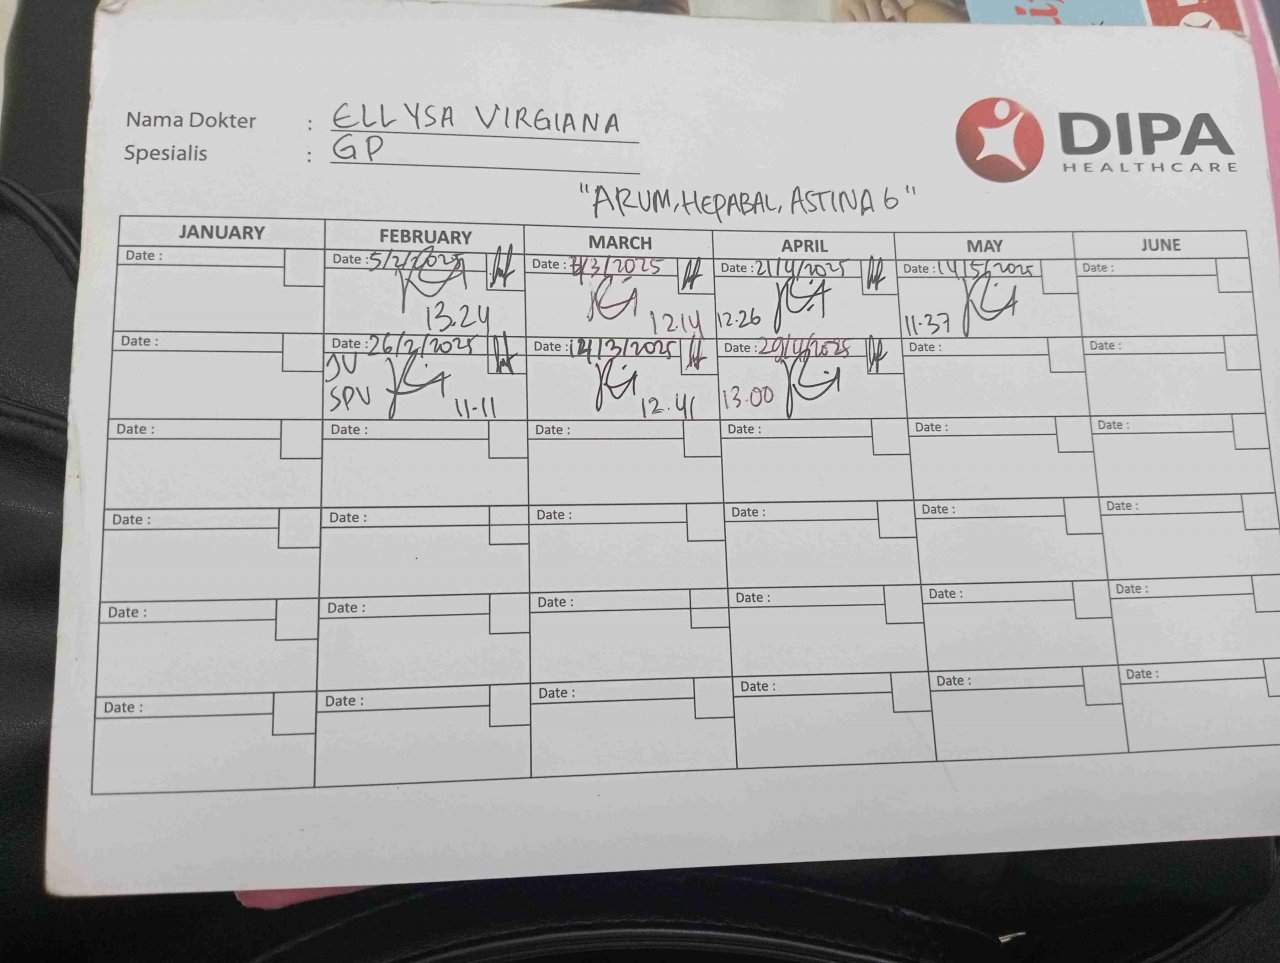 Nama Dokter : ELLYSA VIRGIANA
Spesialis : GP
DIPA
HEALTHCARE
"ARUM, HEPABAL, ASTINA 6"
JANUARY FEBRUARY MARCH APRIL MAY JUNE
Date : Date : 5/2/2025 Date : /3/2025 Date : 21/4/2025 Date : 14/5/2025 Date :
13.24 12.14 12.26 11.37
Date : Date : 26/2/2025 Date : 14/3/2025 Date : 29/4/2025 Date : Date :
JV
SPV 11.11 12.41 13.00
Date : Date : Date : Date : Date : Date :
Date : Date : Date : Date : Date : Date :
Date : Date : Date : Date : Date : Date :
Date : Date : Date : Date : Date : Date :